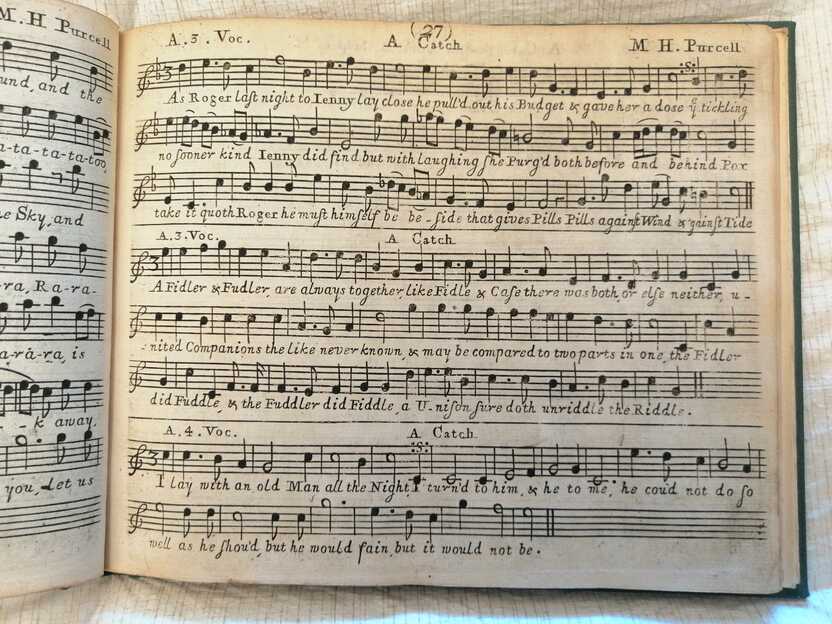 M. H Purcell
und, and the
a-ta-ta-ta-too,
e Sky, and
ra, Ra-ra-
a-ra-ra, is
k away,
you, Let us
(27)
A. 3. Voc. A Catch M H. Purcell
As Roger laſt night to Ienny lay close he pull'd out his Budget & gave her a dose yͤ tickling
no ſooner kind Ienny did find but with laughing ſhe Purg'd both before and behind Pox
take it quoth Roger he muſt himself be be-ſide that gives Pills Pills againſt Wind & 'gainſt Tide
A. 3. Voc. A Catch
A Fidler & Fudler, are always together, like Fidle & Caſe there was both, or elſe neither, u-
-nited Companions the like never known, & may be compared to two parts in one, the Fidler
did Fuddle, & the Fuddler did Fiddle, a U-niſon ſure doth unriddle the Riddle.
A. 4. Voc. A Catch
:S:
I lay with an old Man all the Night, I turn'd to him, & he to me, he coud not do ſo
well as he ſhou'd, but he would fain, but it would not be.